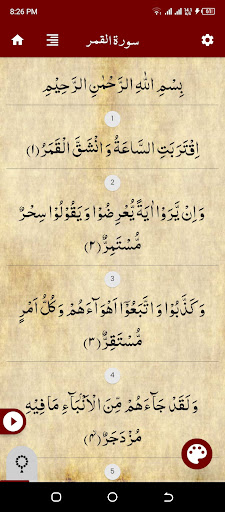 8:26 PM
61
سورة القمر
بِسْمِ اللّٰهِ الرَّحْمٰنِ الرَّحِيْمِ
1
اِقْتَرَبَتِ السَّاعَةُ وَانْشَقَّ الْقَمَرُ ﴿۱﴾
2
وَاِنْ يَّرَوْا اٰيَةً يُّعْرِضُوْا وَيَقُوْلُوْا سِحْرٌ
مُّسْتَمِرٌّ ﴿۲﴾
3
وَكَذَّبُوْا وَاتَّبَعُوْٓا اَهْوَآءَهُمْ وَكُلُّ اَمْرٍ
مُّسْتَقِرٌّ ﴿۳﴾
4
وَلَقَدْ جَآءَهُمْ مِّنَ الْاَنْۢبَآءِ مَا فِيْهِ
مُزْدَجَرٌ ﴿۴﴾
5